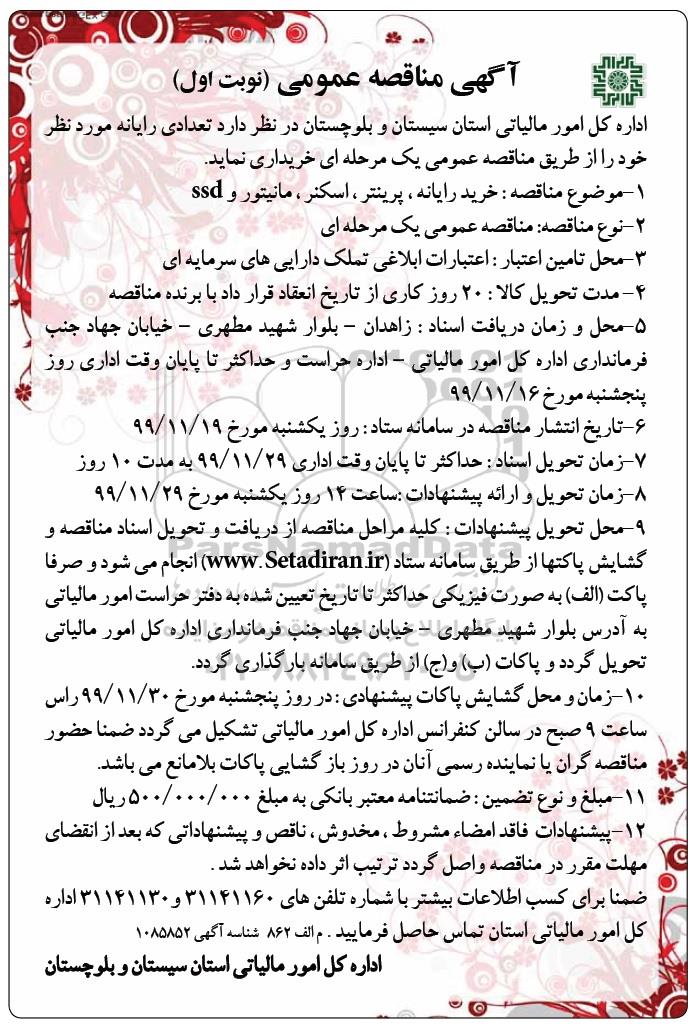 آگهی مناقصه عمومی (نوبت اول)
اداره کل امور مالیاتی استان سیستان و بلوچستان در نظر دارد تعدادی رایانه مورد نظر
خود را از طریق مناقصه عمومی یک مرحله ای خریداری نماید.
۱-موضوع مناقصه : خرید رایانه ، پرینتر ، اسکنر ، مانیتور و ssd
۲-نوع مناقصه: مناقصه عمومی یک مرحله ای
۳-محل تامین اعتبار : اعتبارات ابلاغی تملک دارایی های سرمایه ای
۴- مدت تحویل کالا : ۲۰ روز کاری از تاریخ انعقاد قرار داد با برنده مناقصه
۵-محل و زمان دریافت اسناد : زاهدان - بلوار شهید مطهری - خیابان جهاد جنب
فرمانداری اداره کل امور مالیاتی - اداره حراست و حداکثر تا پایان وقت اداری روز
پنجشنبه مورخ ۹۹/۱۱/۱۶
۶-تاریخ انتشار مناقصه در سامانه ستاد : روز یکشنبه مورخ ۹۹/۱۱/۱۹
۷-زمان تحویل اسناد : حداکثر تا پایان وقت اداری ۹۹/۱۱/۲۹ به مدت ۱۰ روز
۸-زمان تحویل و ارائه پیشنهادات :ساعت ۱۴ روز یکشنبه مورخ ۹۹/۱۱/۲۹
۹-محل تحویل پیشنهادات : کلیه مراحل مناقصه از دریافت و تحویل اسناد مناقصه و
گشایش پاکتها از طریق سامانه ستاد (www.Setadiran.ir) انجام می شود و صرفا
پاکت (الف) به صورت فیزیکی حداکثر تا تاریخ تعیین شده به دفتر حراست امور مالیاتی
به آدرس بلوار شهید مطهری - خیابان جهاد جنب فرمانداری اداره کل امور مالیاتی
تحویل گردد و پاکات (ب) و(ج) از طریق سامانه بارگذاری گردد.
۱۰-زمان و محل گشایش پاکات پیشنهادی : در روز پنجشنبه مورخ ۹۹/۱۱/۳۰ راس
ساعت ۹ صبح در سالن کنفرانس اداره کل امور مالیاتی تشکیل می گردد ضمنا حضور
مناقصه گران یا نماینده رسمی آنان در روز باز گشایی پاکات بلامانع می باشد.
۱۱-مبلغ و نوع تضمین : ضمانتنامه معتبر بانکی به مبلغ ۵۰۰/۰۰۰/۰۰۰ ریال
۱۲-پیشنهادات فاقد امضاء مشروط ، مخدوش ، ناقص و پیشنهاداتی که بعد از انقضای
مهلت مقرر در مناقصه واصل گردد ترتیب اثر داده نخواهد شد .
ضمنا برای کسب اطلاعات بیشتر با شماره تلفن های ۳۱۱۴۱۱۶۰ و ۳۱۱۴۱۱۳۰ اداره
کل امور مالیاتی استان تماس حاصل فرمایید . م الف ۸۶۲ شناسه آگهی ۱۰۸۵۸۵۲
اداره کل امور مالیاتی استان سیستان و بلوچستان
ParsNamadData